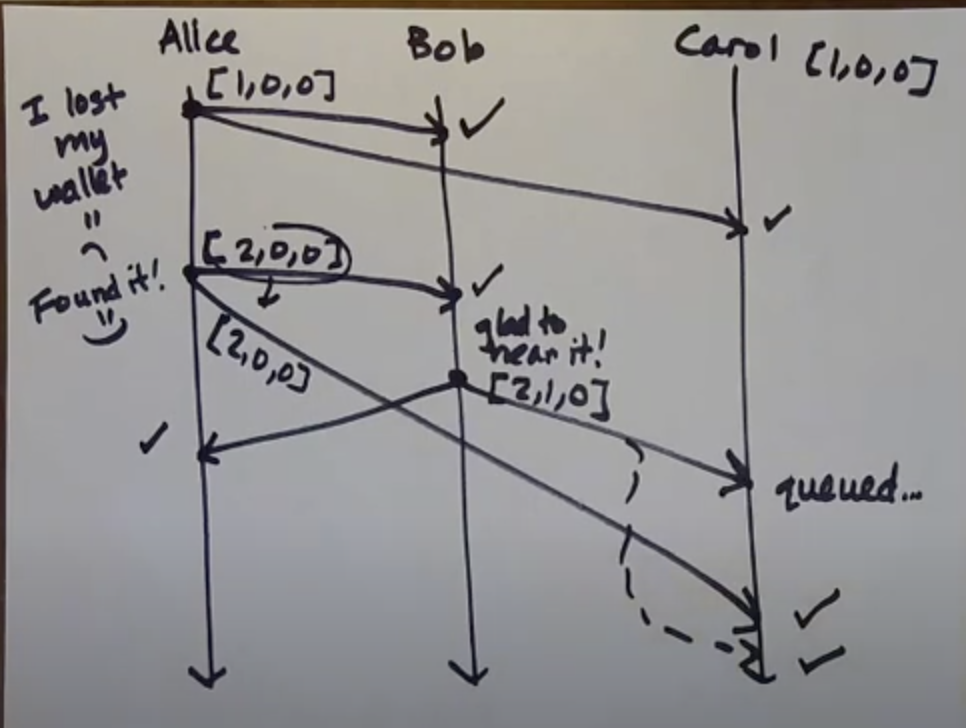 Alice
Bob
Carol [1,0,0]
[1,0,0]
I lost
my
wallet
[2,0,0]
Found it!
glad to
hear it!
[2,0,0]
[2,1,0]
queued...